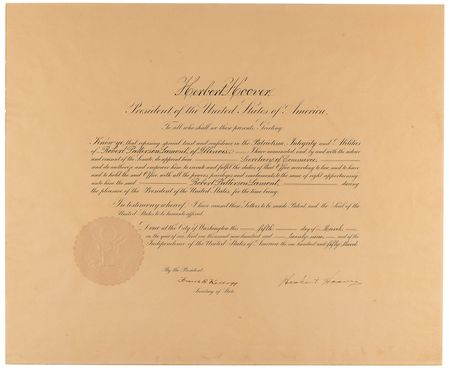 Herbert Hoover,
President of the United States of America.
To all who shall see these presents, Greeting:
Know ye, that reposing special trust and confidence in the Patriotism, Integrity and Abilities
of Robert Patterson Lamont, of Illinois, I have nominated, and by and with the advice
and consent of the Senate, do appoint him Secretary of Commerce
and do authorize and empower him to execute and fulfil the duties of that Office according to law, and to have
and to hold the said Office, with all the powers, privileges and emoluments to the same of right appertaining,
unto him the said Robert Patterson Lamont, during
the pleasure of the President of the United States, for the time being.
In testimony whereof, I have caused these Letters to be made Patent, and the Seal of the
United States to be hereunto affixed.
Done at the City of Washington this fifth day of March,
in the year of our Lord one thousand nine hundred and twenty-nine, and of the
Independence of the United States of America the one hundred and fifty-third.
By the President:
Frank B. Kellogg
Secretary of State.
Herbert Hoover